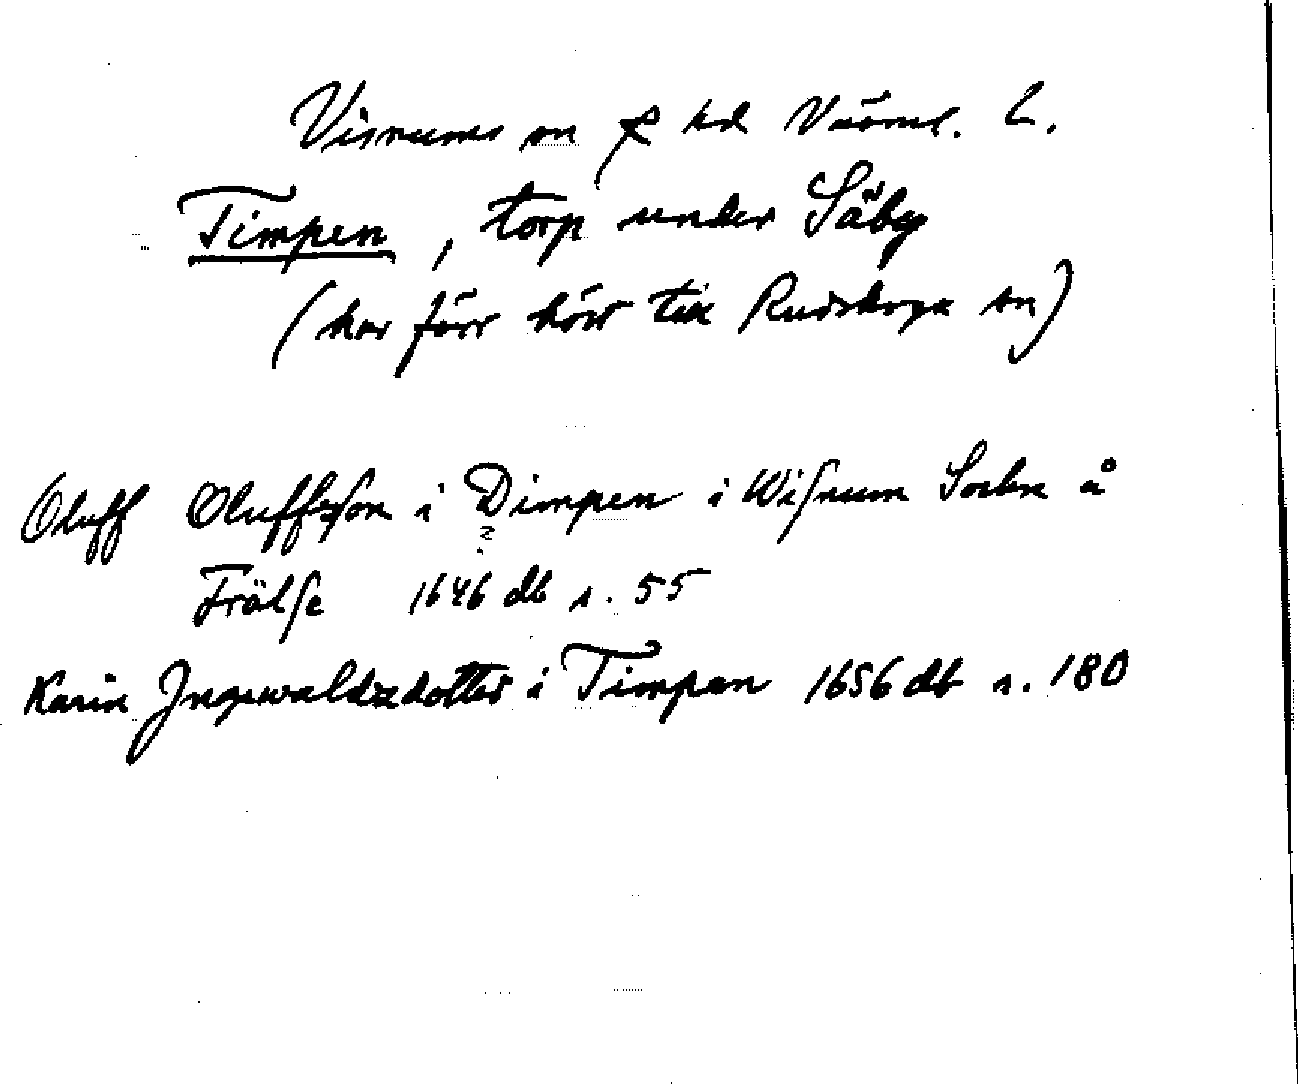 Visnums sn & hd Värml. L.
Timpen, torp under Säby
(har förr hört till Rudskoga sn)
Oluff Oluffzson i Dimpen i Wisnum Sockn å
Frälse 1646 db s. 55
Karin Jngewaldzdotter i Timpan 1656 db s. 180